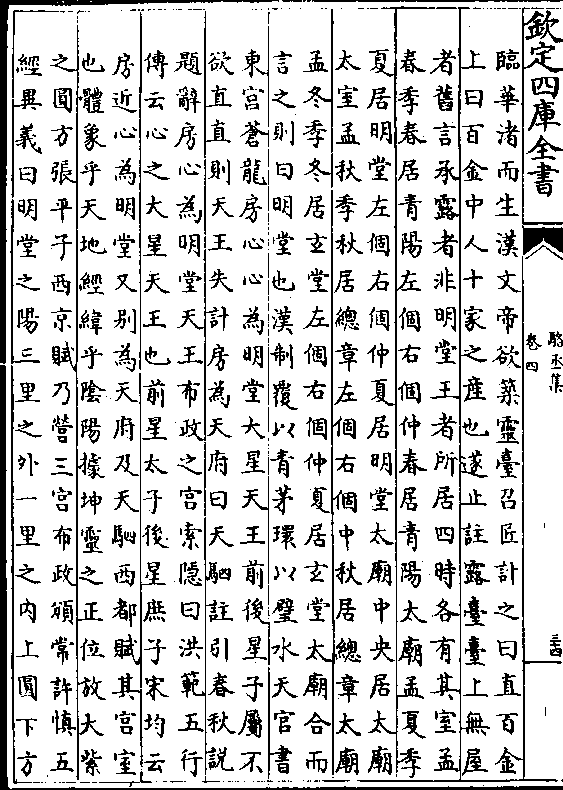 欽定四庫全書
駱丞集
卷四
三十四
臨華渚而生漢文帝欲築靈臺召匠計之曰直百金
上曰百金中人十家之產也遂止註露臺臺上無屋
者舊言承露者非明堂王者所居四時各有其室孟
春季春居青陽左個右個仲春居青陽太廟孟夏季
夏居明堂左個右個仲夏居明堂太廟中央居太廟
太室孟秋季秋居總章左個右個中秋居總章太廟
孟冬季冬居玄堂左個右個仲夏居玄堂太廟合而
言之則曰明堂也漢制覆以青茅環以璧水天官書
東宮蒼龍房心心為明堂大星天王前後星子屬不
欲直直則天王失計房為天府曰天駟註引春秋說
題辭房心為明堂天王布政之宮索隱曰洪範五行
傳云心之大星天王也前星太子後星庶子宋均云
房近心為明堂又别為天府及天駟西都賦其宮室
也體象乎天地經緯乎陰陽據坤靈之正位放大紫
之圓方張平子西京賦乃營三宮布政頒常許慎五
經異義曰明堂之陽三里之外一里之內上圓下方